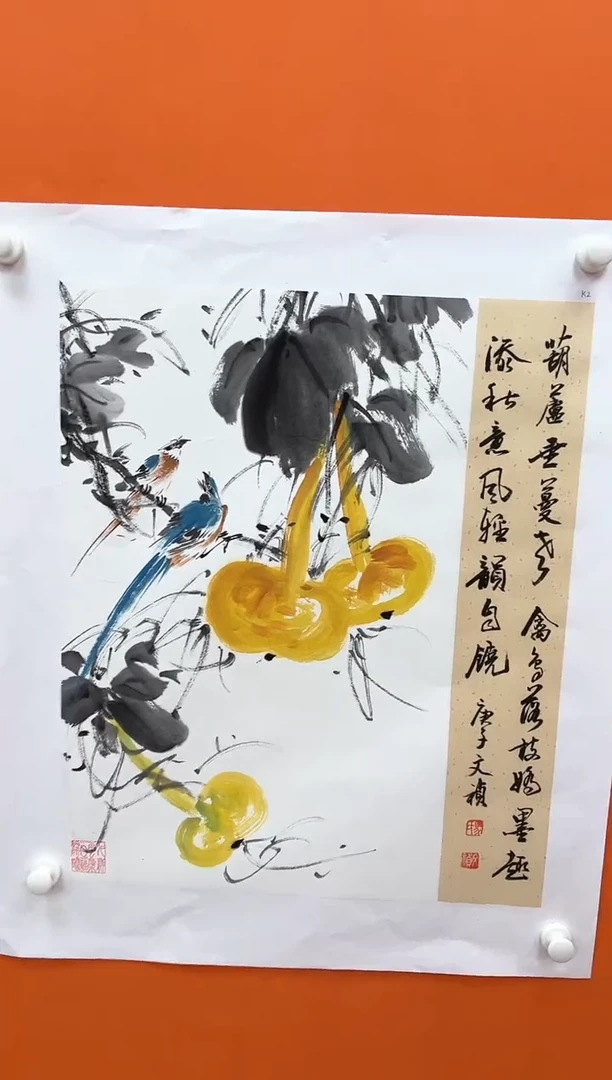 葫蘆垂蔓老禽鳥落枝嬌墨趣
添秋意風輕韻自饒
庚子文禎
K2